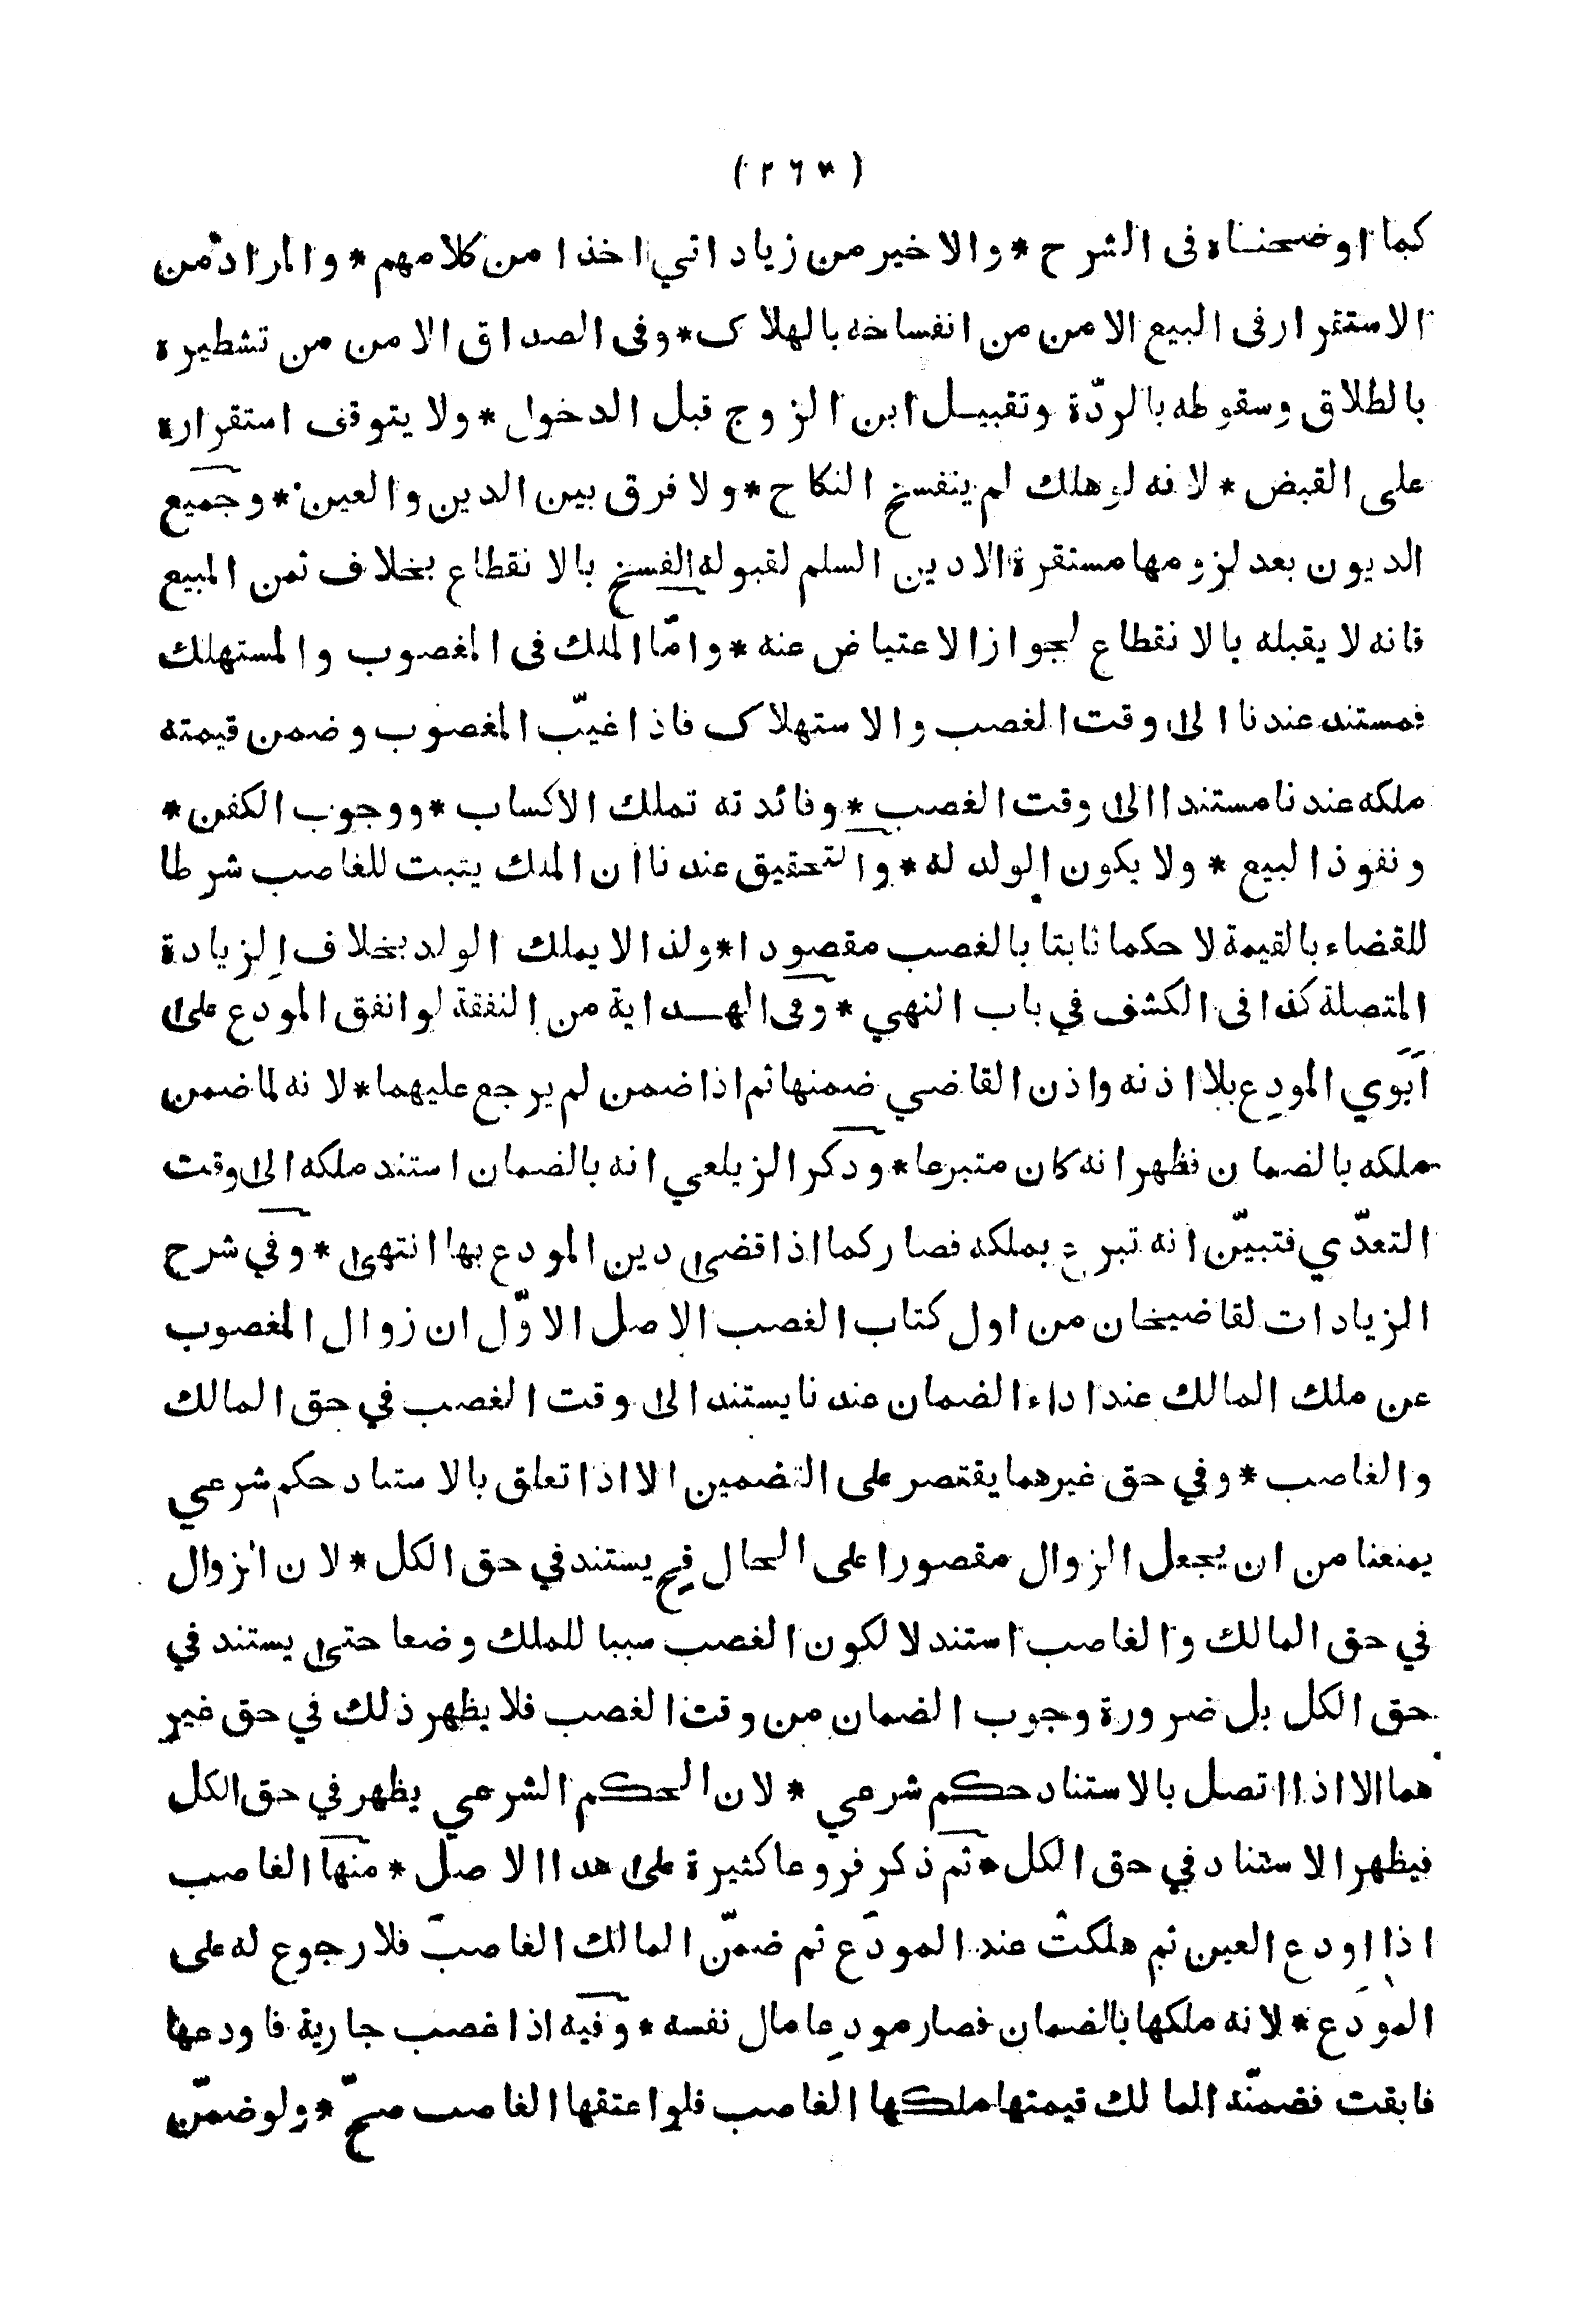 (٢٦٣)
كما اوضحناه فى الشرح * والاخير من زياداتي اخذا من كلامهم * والمراد من
الاستقرار فى البيع الامن من انفساخه بالهلاك * وفى الصداق الامن من تشطيره
بالطلاق وسقوطه بالردّة وتقبيل ابن الزوج قبل الدخول * ولا يتوقف استقراره
على القبض * لانه لو هلك لم ينفسخ النكاح * ولا فرق بين الدين والعين * وجميع
الديون بعد لزومها مستقرة الا دين السلم لقبوله الفسخ بالانقطاع بخلاف ثمن المبيع
فانه لا يقبله بالانقطاع لجواز الاعتياض عنه * وامّا الملك فى المغصوب والمستهلك
فمستند عندنا الى وقت الغصب والاستهلاك فاذا غيّب المغصوب وضمن قيمته
ملكه عندنا مستندا الى وقت الغصب * وفائدته تملك الاكساب * ووجوب الكفن *
ونفوذ البيع * ولا يكون الولد له * والتحقيق عندنا ان الملك يثبت للغاصب شرطا
للقضاء بالقيمة لا حكما ثابتا بالغصب مقصودا * ولذا لا يملك الولد بخلاف الزيادة
المتصلة كذا فى الكشف في باب النهي * وفى الهداية من النفقة لو انفق المودع على
اَبَوَي المودِع بلا اذنه واذن القاضي ضمنها ثم اذا ضمن لم يرجع عليهما * لانه لما ضمن
ملكه بالضمان فظهر انه كان متبرعا * وذكر الزيلعي انه بالضمان استند ملكه الى وقت
التعدّي فتبيّن انه تبرع بملكه فصار كما اذا قضى دين المودع بها انتهى * وفي شرح
الزيادات لقاضيخان من اول كتاب الغصب الاصل الاوّل ان زوال المغصوب
عن ملك المالك عند اداء الضمان عندنا يستند الى وقت الغصب في حق المالك
والغاصب * وفي حق غيرهما يقتصر على التضمين الا اذا تعلق بالاستناد حكم شرعي
يمنعنا من ان يجعل الزوال مقصورا على الحال فح يستند في حق الكل * لان الزوال
في حق المالك والغاصب استند لا لكون الغصب سببا للملك وضعا حتى يستند في
حق الكل بل ضرورة وجوب الضمان من وقت الغصب فلا يظهر ذلك في حق غير
هما الا اذا اتصل بالاستناد حكم شرعي * لان الحكم الشرعي يظهر في حق الكل
فيظهر الاستناد في حق الكل * ثم ذكر فروعا كثيرة على هذا الاصل * منها الغاصب
اذا اودع العين ثم هلكت عند المودَع ثم ضمّن المالك الغاصبَ فلا رجوع له على
المودَع * لانه ملكها بالضمان فصار مودِعا مال نفسه * وفيه اذا غصب جارية فاودعها
فابقت فضمّنه المالك قيمتها ملكها الغاصب فلو اعتقها الغاصب صحّ * ولو ضمّن